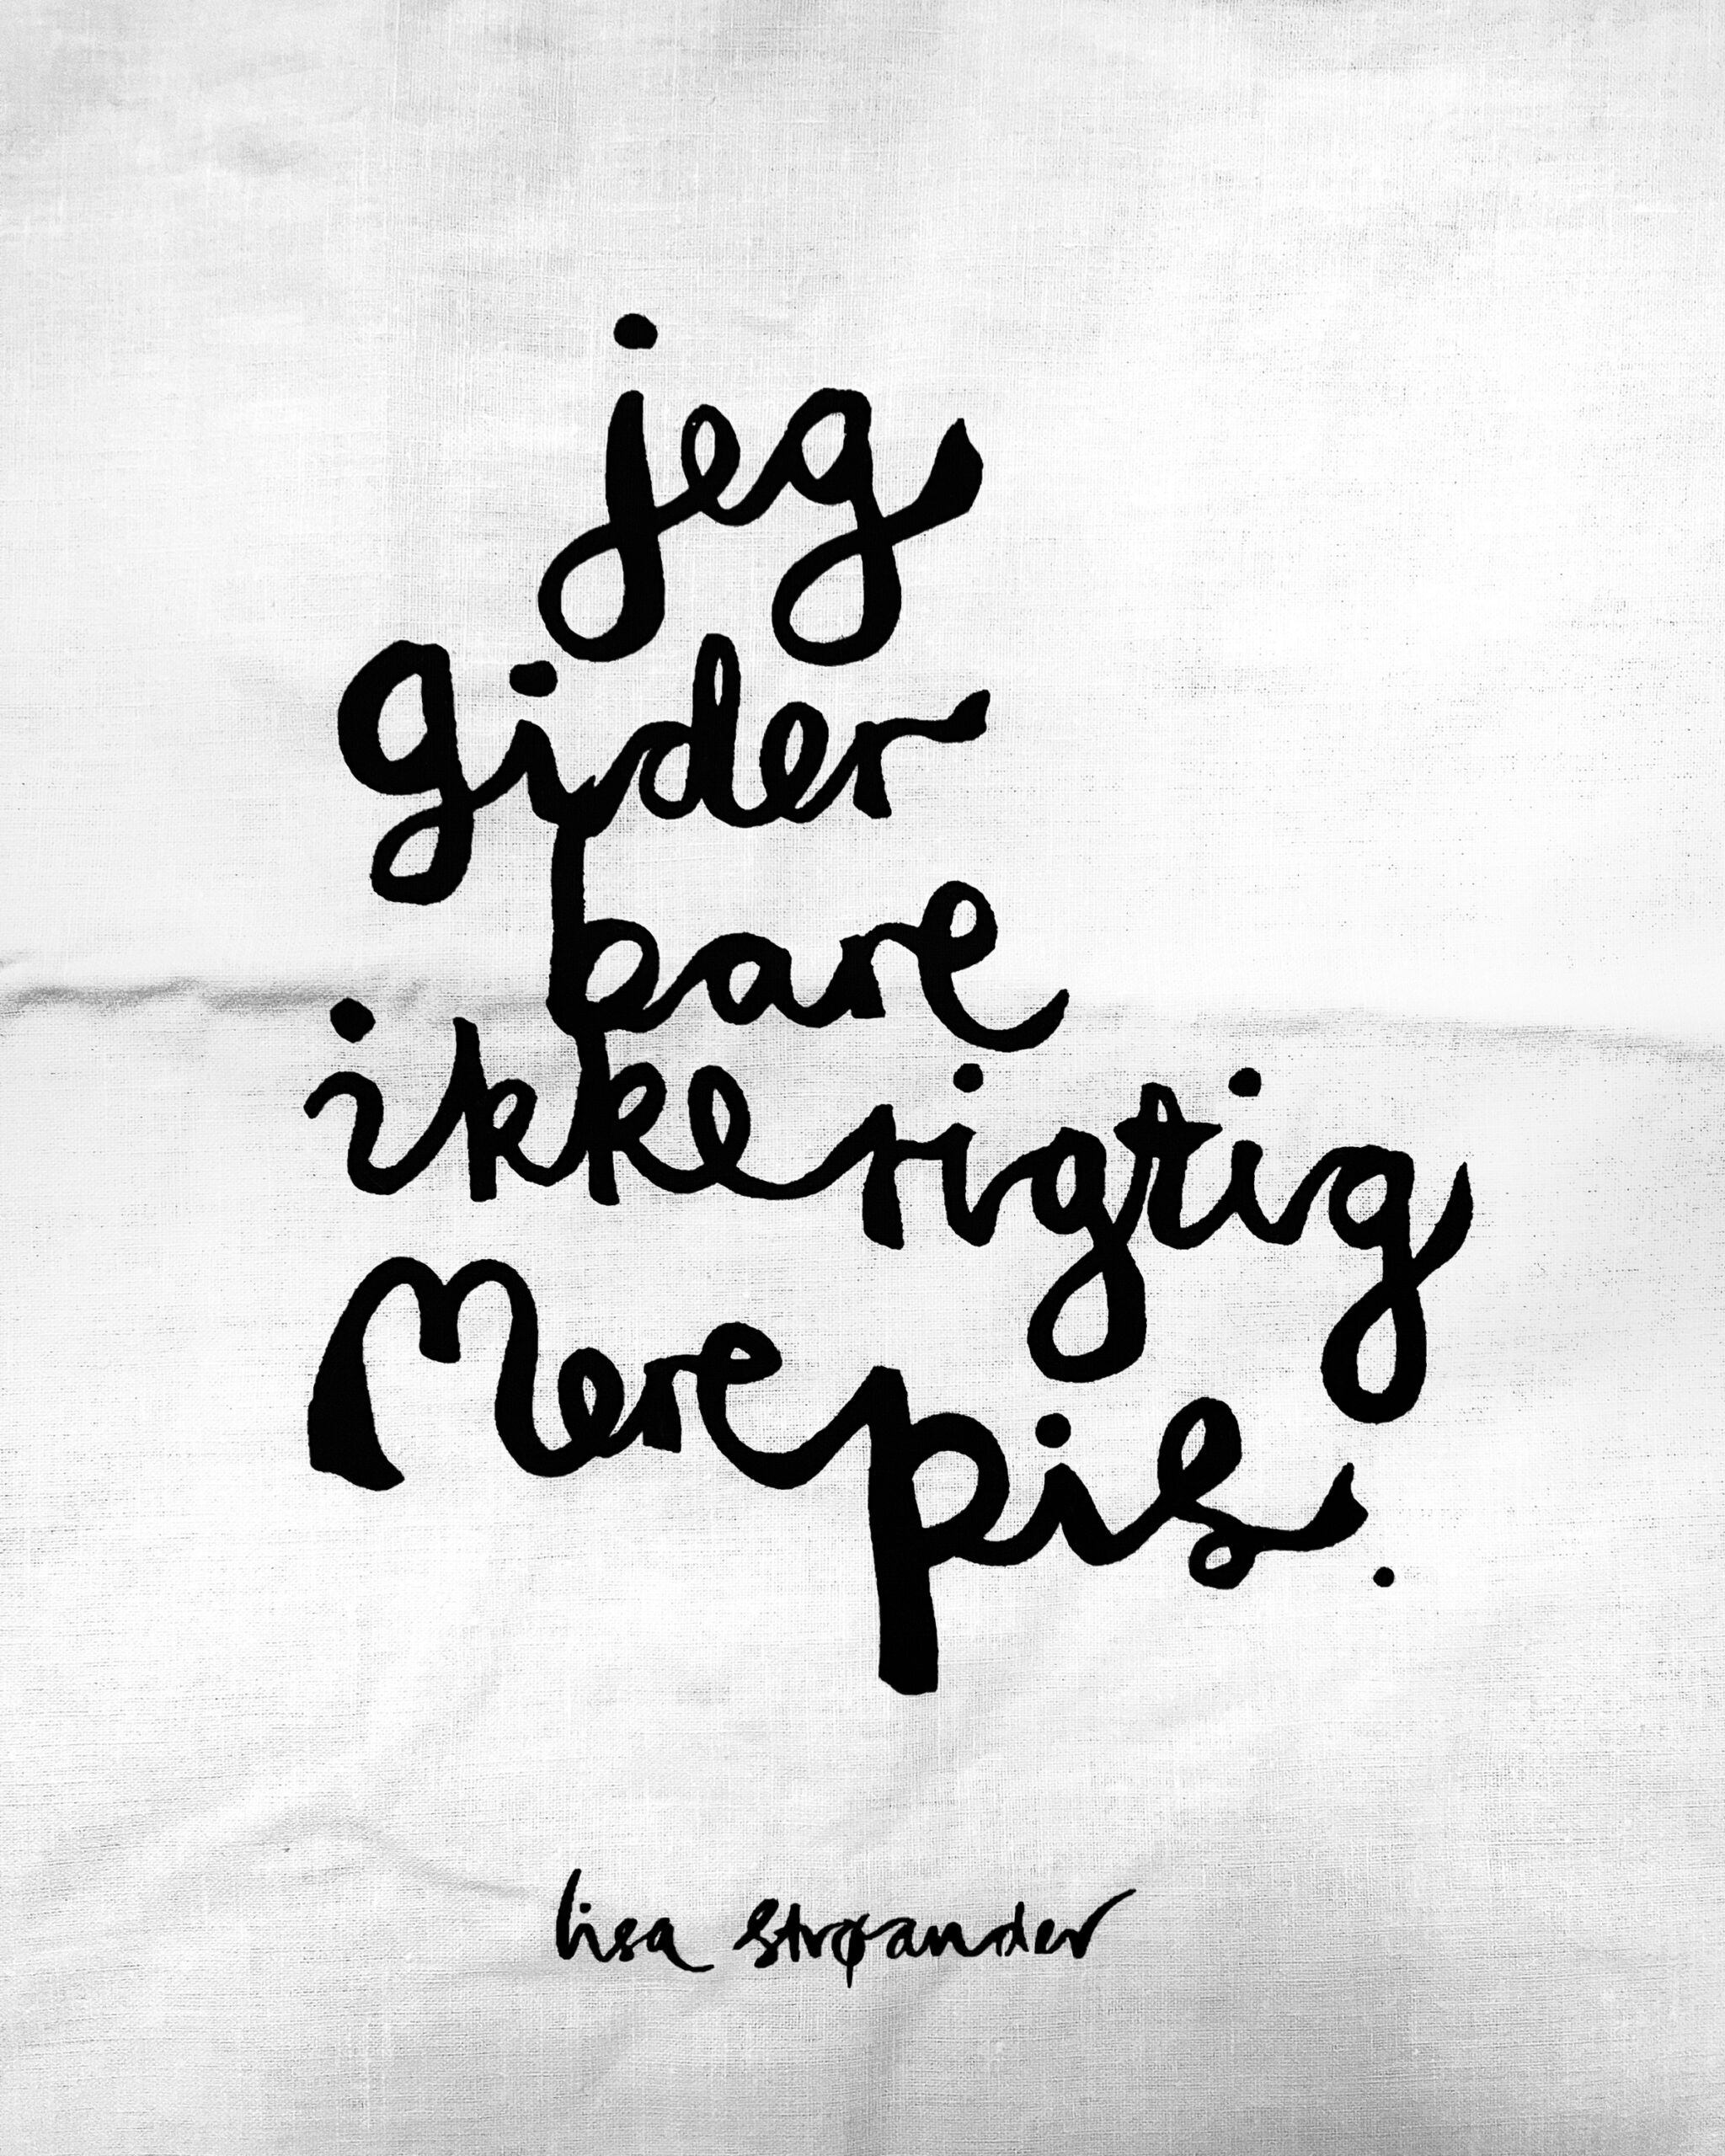 jeg
gider
bare
ikke rigtig
Mere pis.
lisa strøander